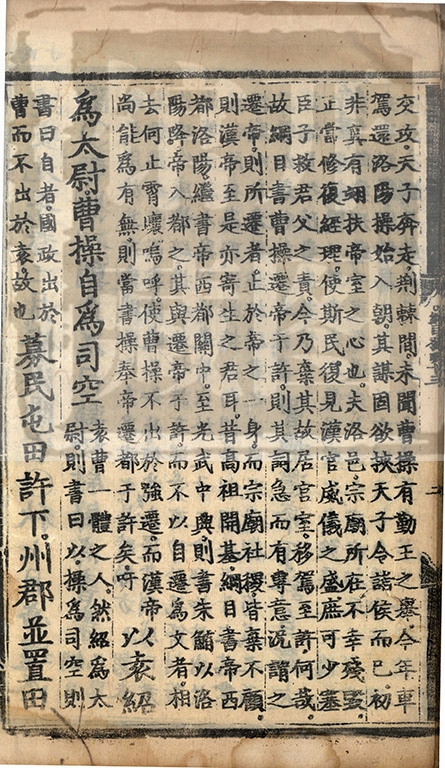 交攻天子奔走荊棘間未聞曹操有勤王之舉今年車
駕還洛陽操始入朝其謀固欲挾天子令諸侯而已初
非真有翊扶帝室之心也夫洛邑宗廟所在不幸殘毀
正當修復經理使斯民復見漢官威儀之盛庶可少塞
臣子救君父之責今乃棄其故居官室移駕至許何哉
故綱目書曹操遷帝于許則其詞急而有專意況謂之
遷帝則所遷者止於帝之一身而宗廟社稷皆棄不顧
則漢帝至是亦寄生之君耳昔高祖開基綱目書帝西
都洛陽繼書帝西都關中至光武中興則書朱鮪以洛
陽降帝入都之其與遷帝于許而不以自遷為文者相
去何止霄壤嗚呼使曹操不出於強遷而漢帝
尚能為有無則當書操奉帝遷都于許矣吁
以袁紹
為太尉曹操自為司空
袁曹一體之人然紹為太
尉則書曰以操為司空則
書曰自者國政出於
曹而不出於袁故也
募民屯田許下州郡並置田